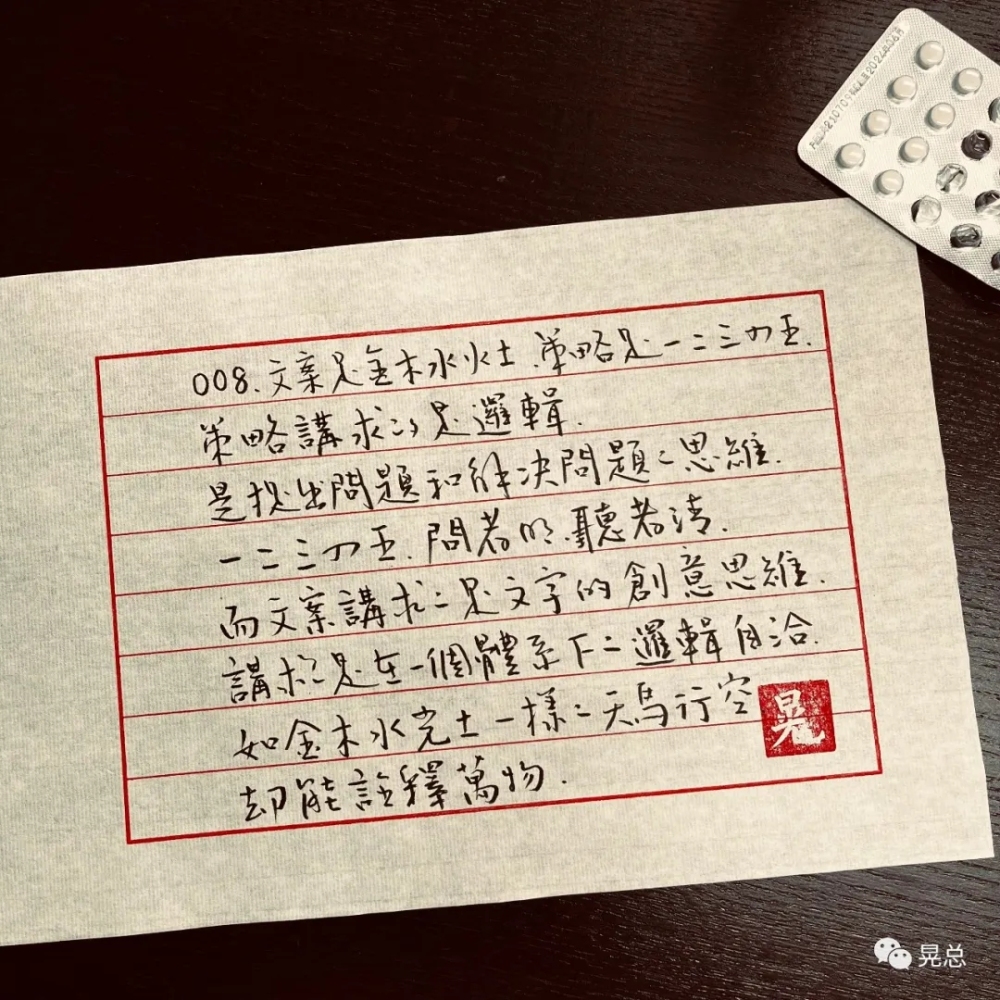 008.文案是金木水火土.策略是一二三四五.
策略講求的是邏輯.
是找出問題和解決問題之思維.
一二三四五.問者明.聽者清.
而文案講求之是文字的創意思維.
講求之是在一個體系下之邏輯自洽.
如金木水火土一樣之天馬行空
却能詮釋萬物.
晃
晃总